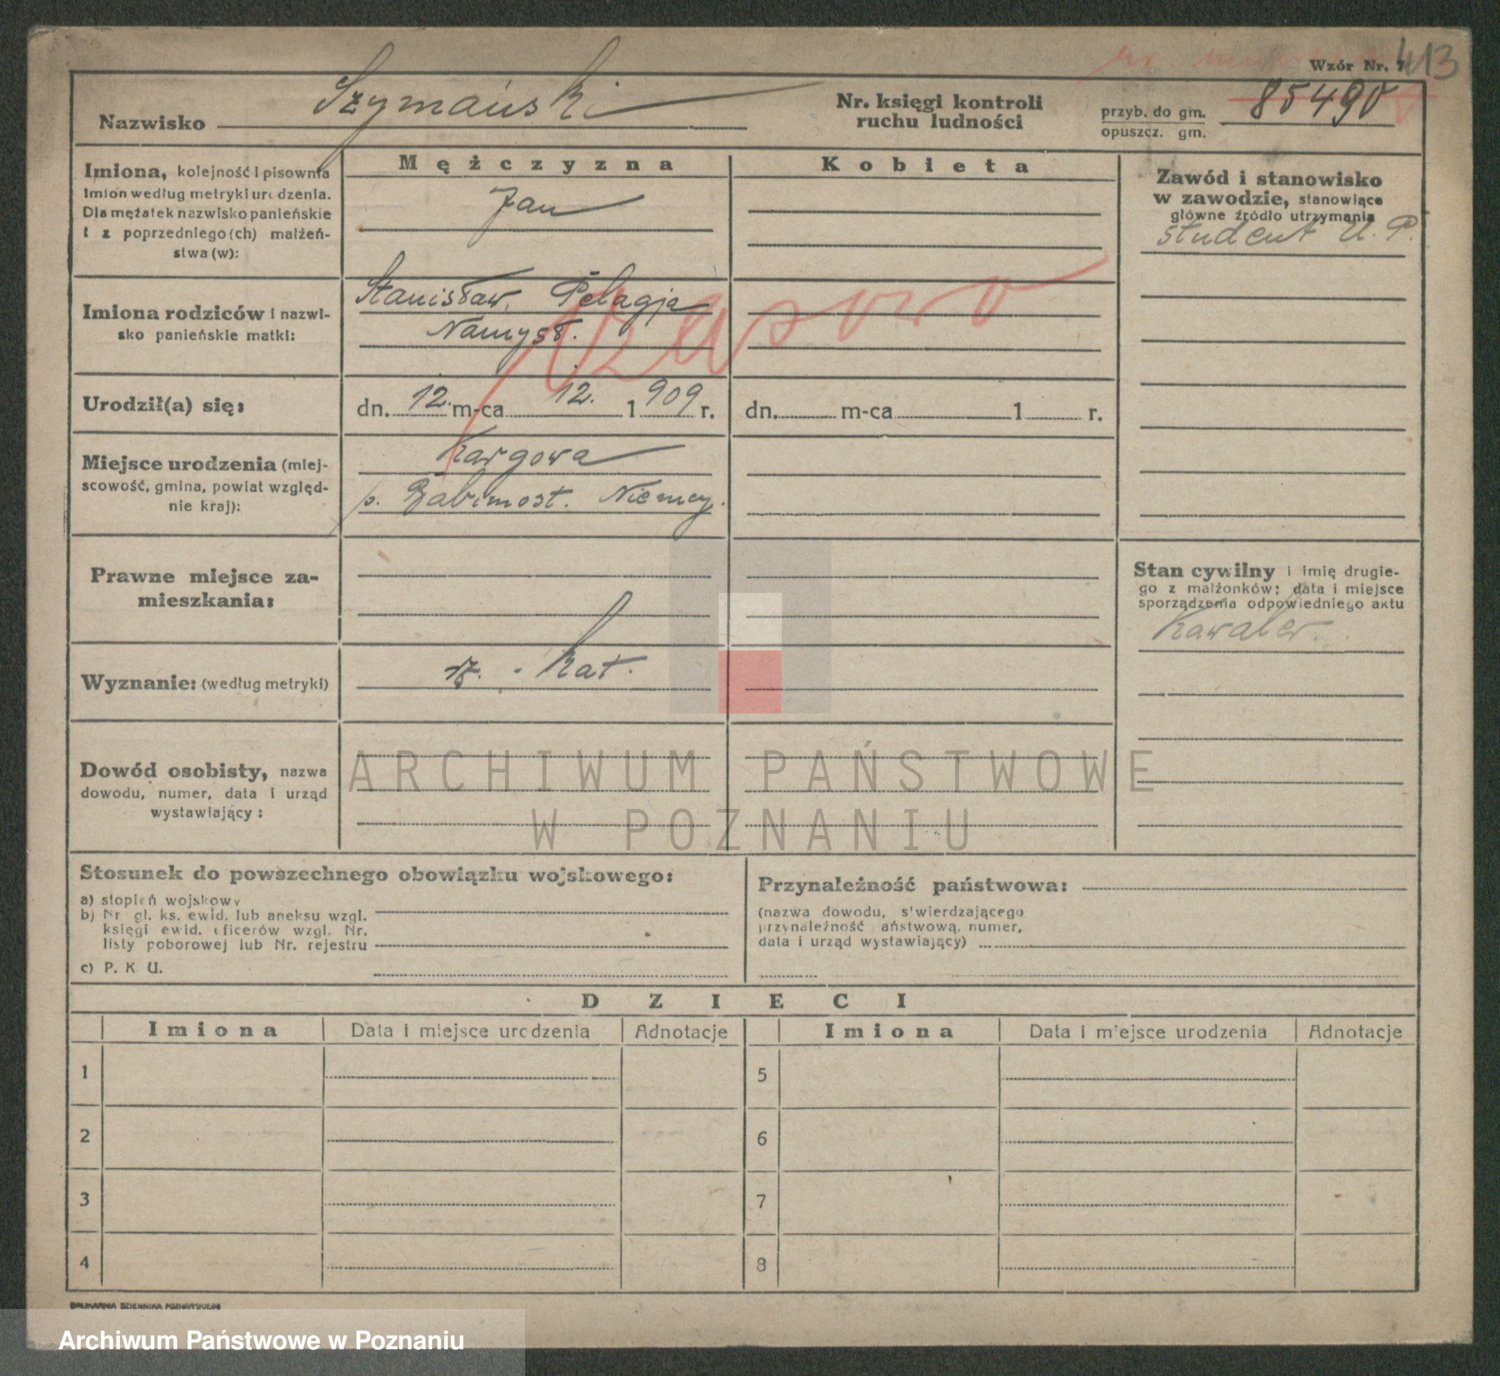 Wzór Nr. 1
413
Nazwisko Szymański
Nr. księgi kontroli
ruchu ludności
przyb. do gm.
opuszcz. gm.
85490
Imiona, kolejność i pisownia
imion według metryki urodzenia.
Dla mężatek nazwisko panieńskie
i z poprzedniego(ch) małżeń-
stwa (w):
Mężczyzna
Jan
Kobieta
Zawód i stanowisko
w zawodzie, stanowiące
główne źródło utrzymania
student U. P.
Imiona rodziców i nazwi-
sko panieńskie matki:
Stanisław, Pelagja
Namysł.
czasowo
Urodził(a) się:
dn. 12. m-ca 12. 1909 r.
dn. m-ca 1 r.
Miejsce urodzenia (miej-
scowość, gmina, powiat względ-
nie kraj):
Kargowa
p. Babimost. Niemcy.
Prawne miejsce za-
mieszkania:
Stan cywilny i imię drugie-
go z małżonków; data i miejsce
sporządzenia odpowiedniego aktu
Kawaler.
Wyznanie: (według metryki)
rz. - kat.
Dowód osobisty, nazwa
dowodu, numer, data i urząd
wystawiający:
ARCHIWUM PAŃSTWOWE
W POZNANIU
Stosunek do powszechnego obowiązku wojskowego:
a) stopień wojskowy
b) Nr gł. ks. ewid. lub aneksu wzgl.
księgi ewid. oficerów wzgl. Nr.
listy poborowej lub Nr. rejestru
c) P. K. U.
Przynależność państwowa:
(nazwa dowodu, stwierdzającego
przynależność państwową, numer,
data i urząd wystawiający)
DZIECI
Imiona Data i miejsce urodzenia Adnotacje Imiona Data i miejsce urodzenia Adnotacje
1 5
2 6
3 7
4 8
DRUKARNIA DZIENNIKA POZNAŃSKIEGO
Archiwum Państwowe w Poznaniu